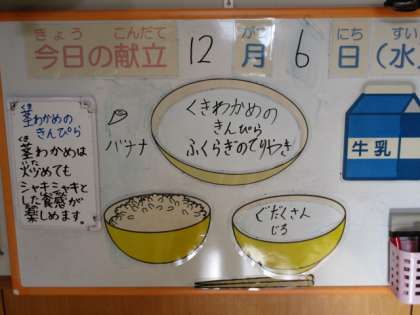 きょう こんだて がつ にち すい
今日の献立 12月 6日(水
くき
茎わかめの
きんぴら
茎わかめは
いた
炒めても
シャキシャキと
した食感が
楽しめます。
バナナ
くきわかめの
きんぴら
ふくらぎのてりやき
牛乳
ぐだくさん
じる